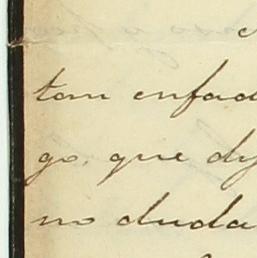 tan enfad
go, que dy
no duda